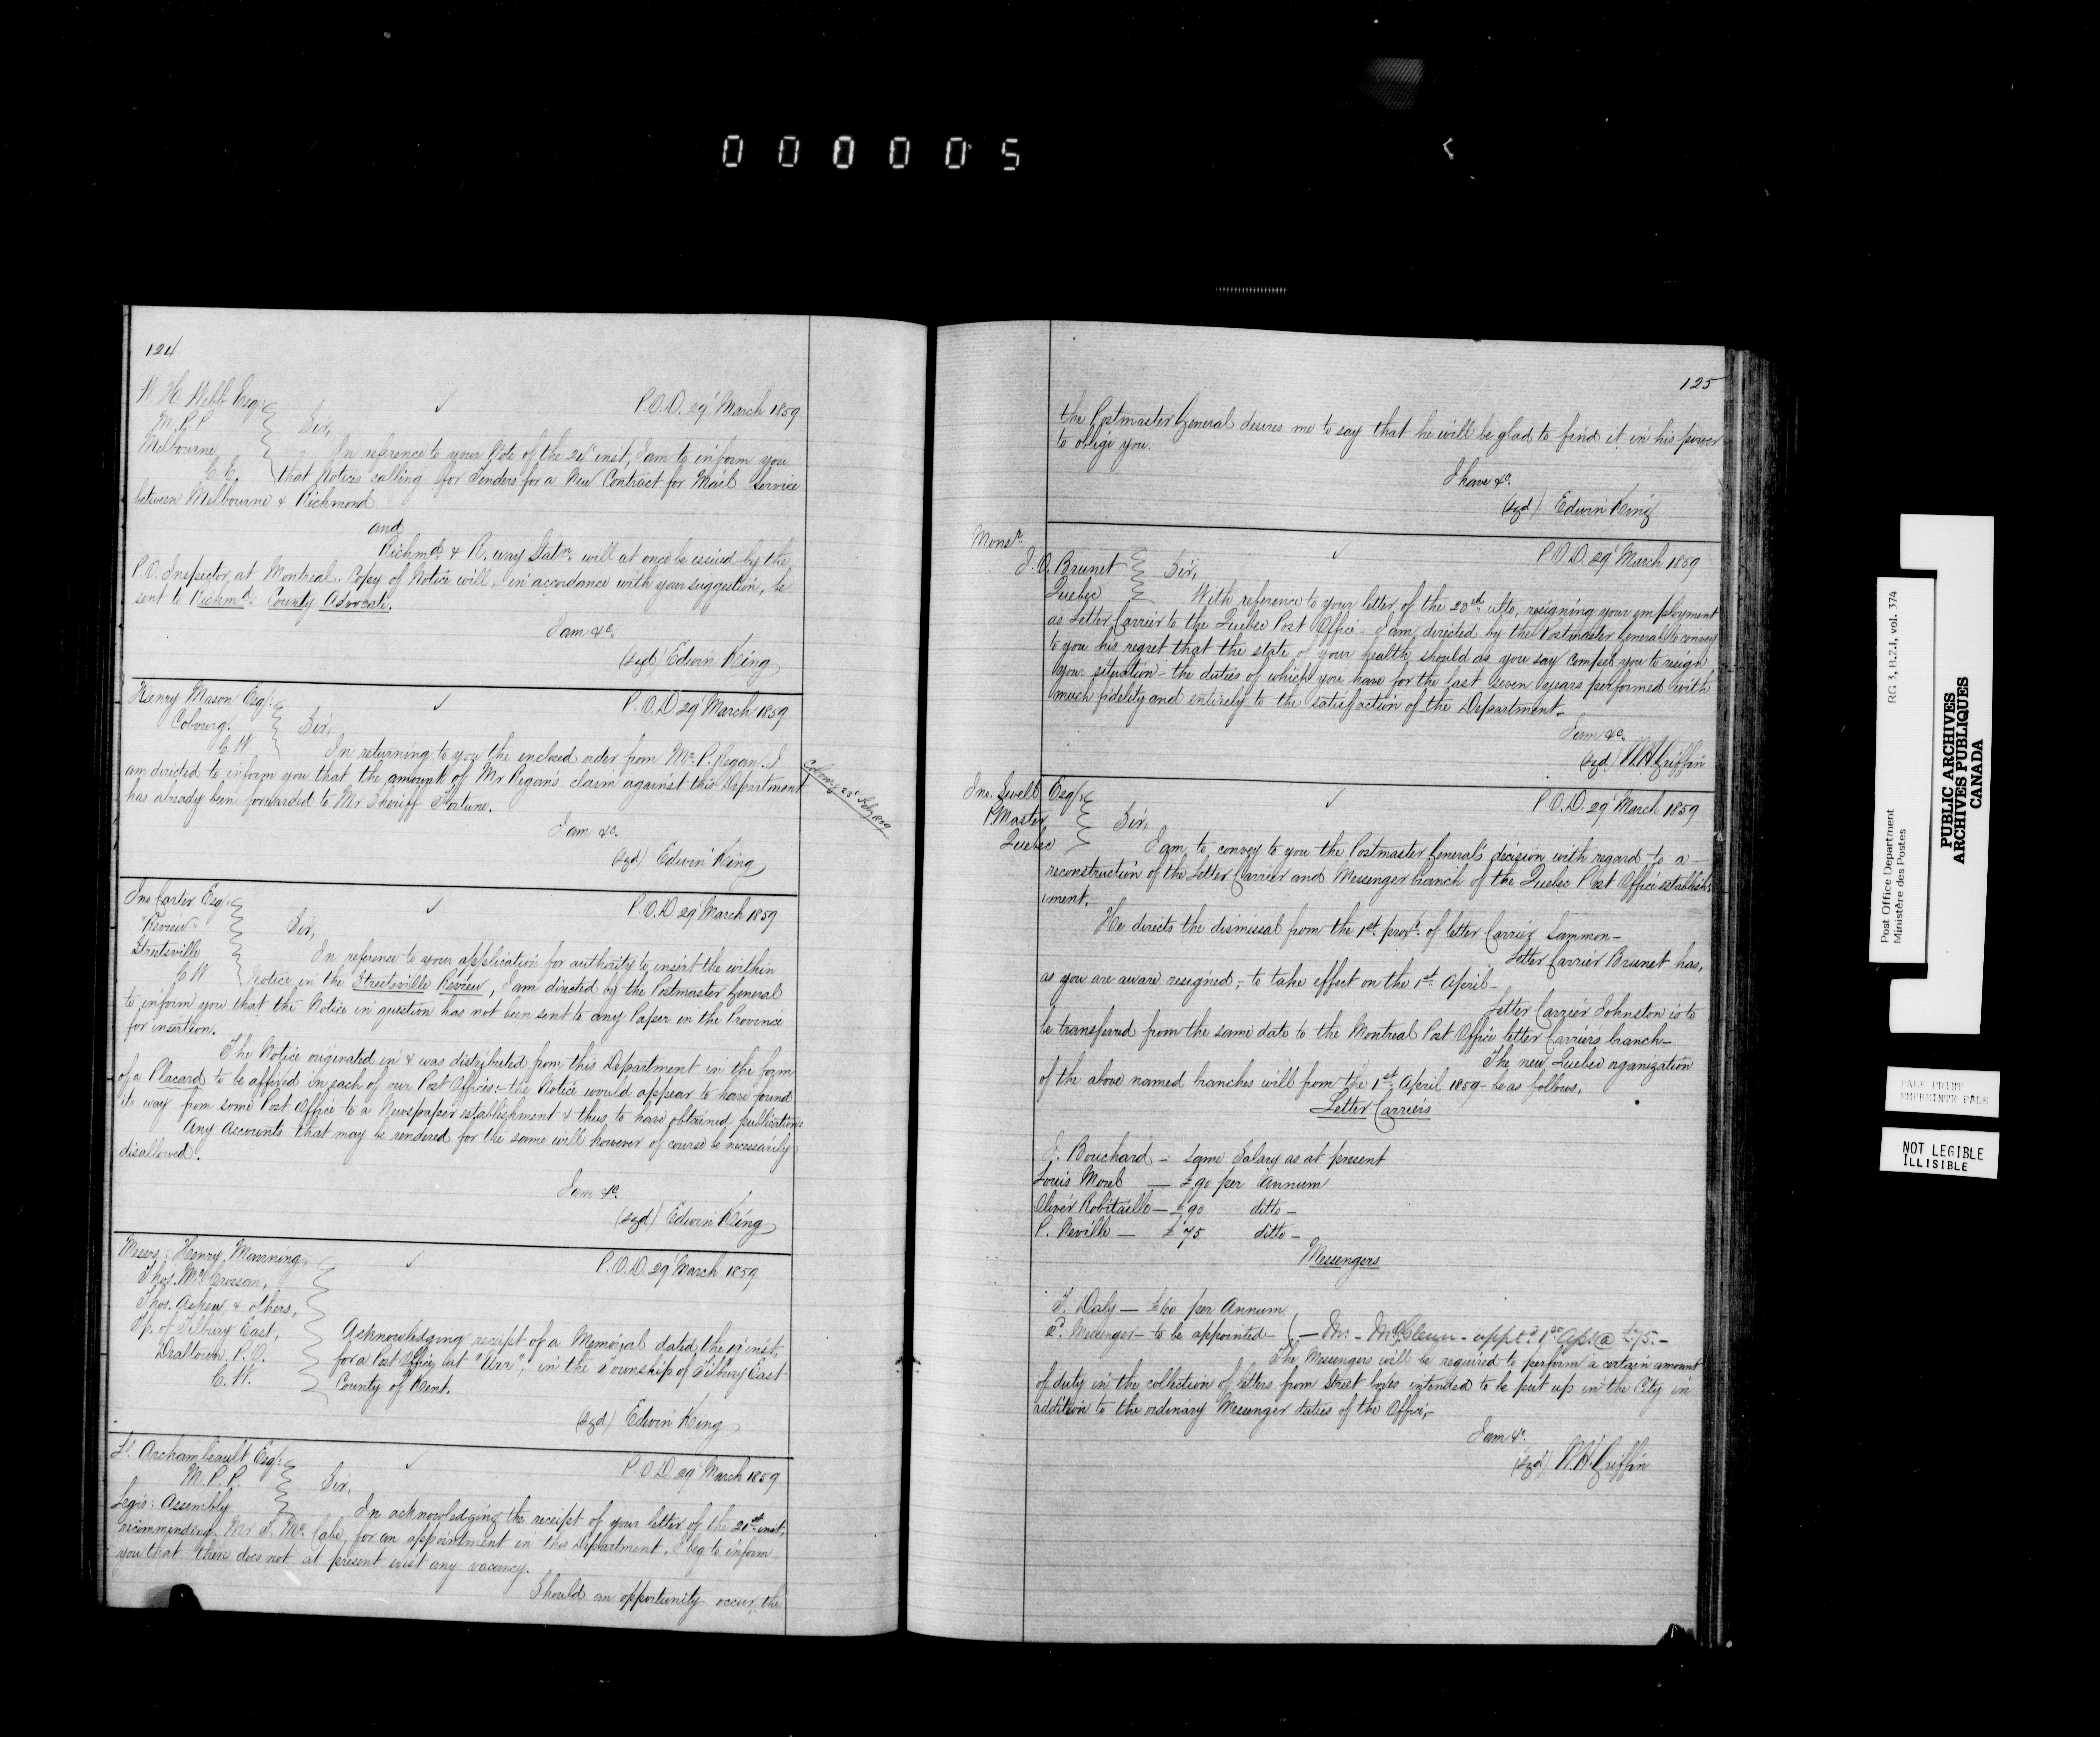 000005
124
W. H. Webb Esqr.
M.P.P.
Melbourne
C.E.
P.O.D. 29' March 1859
Sir,
In reference to your Note of the 24' inst, I am to inform you
that Notices calling for Tenders for a New Contract for Mail Service
between Melbourne & Richmond
and
Richmd. & R. way Statn. will at once be issued by the
P.O. Inspector at Montreal. Copy of Notice will, in accordance with your suggestion, be
sent to Richmd. County Advocate.
I am &c.
(sgd) Edwin King
Henry Mason Esqr.
Cobourg.
C.W
P.O.D 29' March 1859
Sir,
In returning to you the enclosed order from Mr. P. Regan. I
am directed to inform you that the amount of Mr Regan's claim against this Department
has already been forwarded to Mr Sheriff Fortune.
I am &c.
(sgd) Edwin King
Jno Carter Esqr.
"Review"
Streetsville
C.W
P.O.D 29' March 1859
Sir,
In reference to your application for authority to insert the within
Notice in the Streetsville Review, I am directed by the Postmaster General
to inform you that the Notice in question has not been sent to any Paper in the Province
for insertion.
The Notice originated in & was distributed from this Department in the form
of a Placard to be affixed in each of our Post Offices:- the Notice would appear to have found
its way from some Post Office to a Newspaper establishment & thus to have obtained publication.
Any Accounts that may be rendered for the same will however of course be necessarily
disallowed.
I am &c.
(sgd) Edwin King
Messrs: Henry Manning,
Thos. McCrossan,
Thos. Askew & others,
Tp. of Tilbury East,
P.O.
C.W.
P.O.D. 29' March 1859
Acknowledging receipt of a Memorial dated the 19' inst.
for a Post Office at in the Township of Tilbury East
County of Kent.
(sgd) Edwin King
Archambeault Esqr.
M.P.P.
Legis: Assembly
P.O.D. 29' March 1859
Sir,
In acknowledging the receipt of your letter of the 21st inst.
recommending Mr McCabe, for an appointment in this Department, I beg to inform
you that there does not at present exist any vacancy.
Should an opportunity occur the
125
the Postmaster General desires me to say that he will be glad to find it in his power
to oblige you.
I have &c.
(sgd) Edwin King
Monsr.
J. O. Brunet
Quebec
P.O.D. 29' March 1859
Sir,
With reference to your letter of the ulto, resigning your employment
as Letter Carrier to the Quebec Post Office - I am directed by the Postmaster General to convey
to you his regret that the state of your health should as you say compel you to resign
your situation - the duties of which you have for the last seven years performed with
much fidelity and entirely to the satisfaction of the Department.
I am &c.
(sgd) W.H. Griffin
Jno. Sewell Esqr.
P.Master
Quebec
P.O.D. 29' March 1859
Sir,
I am to convey to you the Postmaster General's decision with regard to a
reconstruction of the Letter Carrier and Messenger branch of the Quebec Post Office establish-
-ment.
He directs the dismissal from the 1st. proxo. of letter Carrier Lammon -
Letter Carrier Brunet has,
as you are aware resigned, - to take effect on the 1st. April -
Letter Carrier Johnston is to
be transferred from the same date to the Montreal Post Office letter Carriers branch -
The new Quebec organization
of the above named branches will from the 1st. April 1859 - be as follows,
Letter Carriers
J. Bouchard - same Salary as at present
Louis Morel - £90 per Annum
Oliver Robitaille - £90 ditto -
P. Neville - £75 ditto -
Messengers
T. Daly - £60 per Annum
2d. Messenger - to be appointed - ( - appt'd 1st Apl. @ £75. -
The Messengers will be required to perform a certain amount
of duty in the collection of letters from Street boxes intended to be put up in the City in
addition to the ordinary Messenger duties of the Office, -
I am &c.
(sgd) W.H. Griffin
Post Office Department
Ministère des Postes
RG 3, B.2.1, vol. 374
PUBLIC ARCHIVES
ARCHIVES PUBLIQUES
CANADA
PALE PRINT
EMPREINTE PALE
NOT LEGIBLE
ILLISIBLE